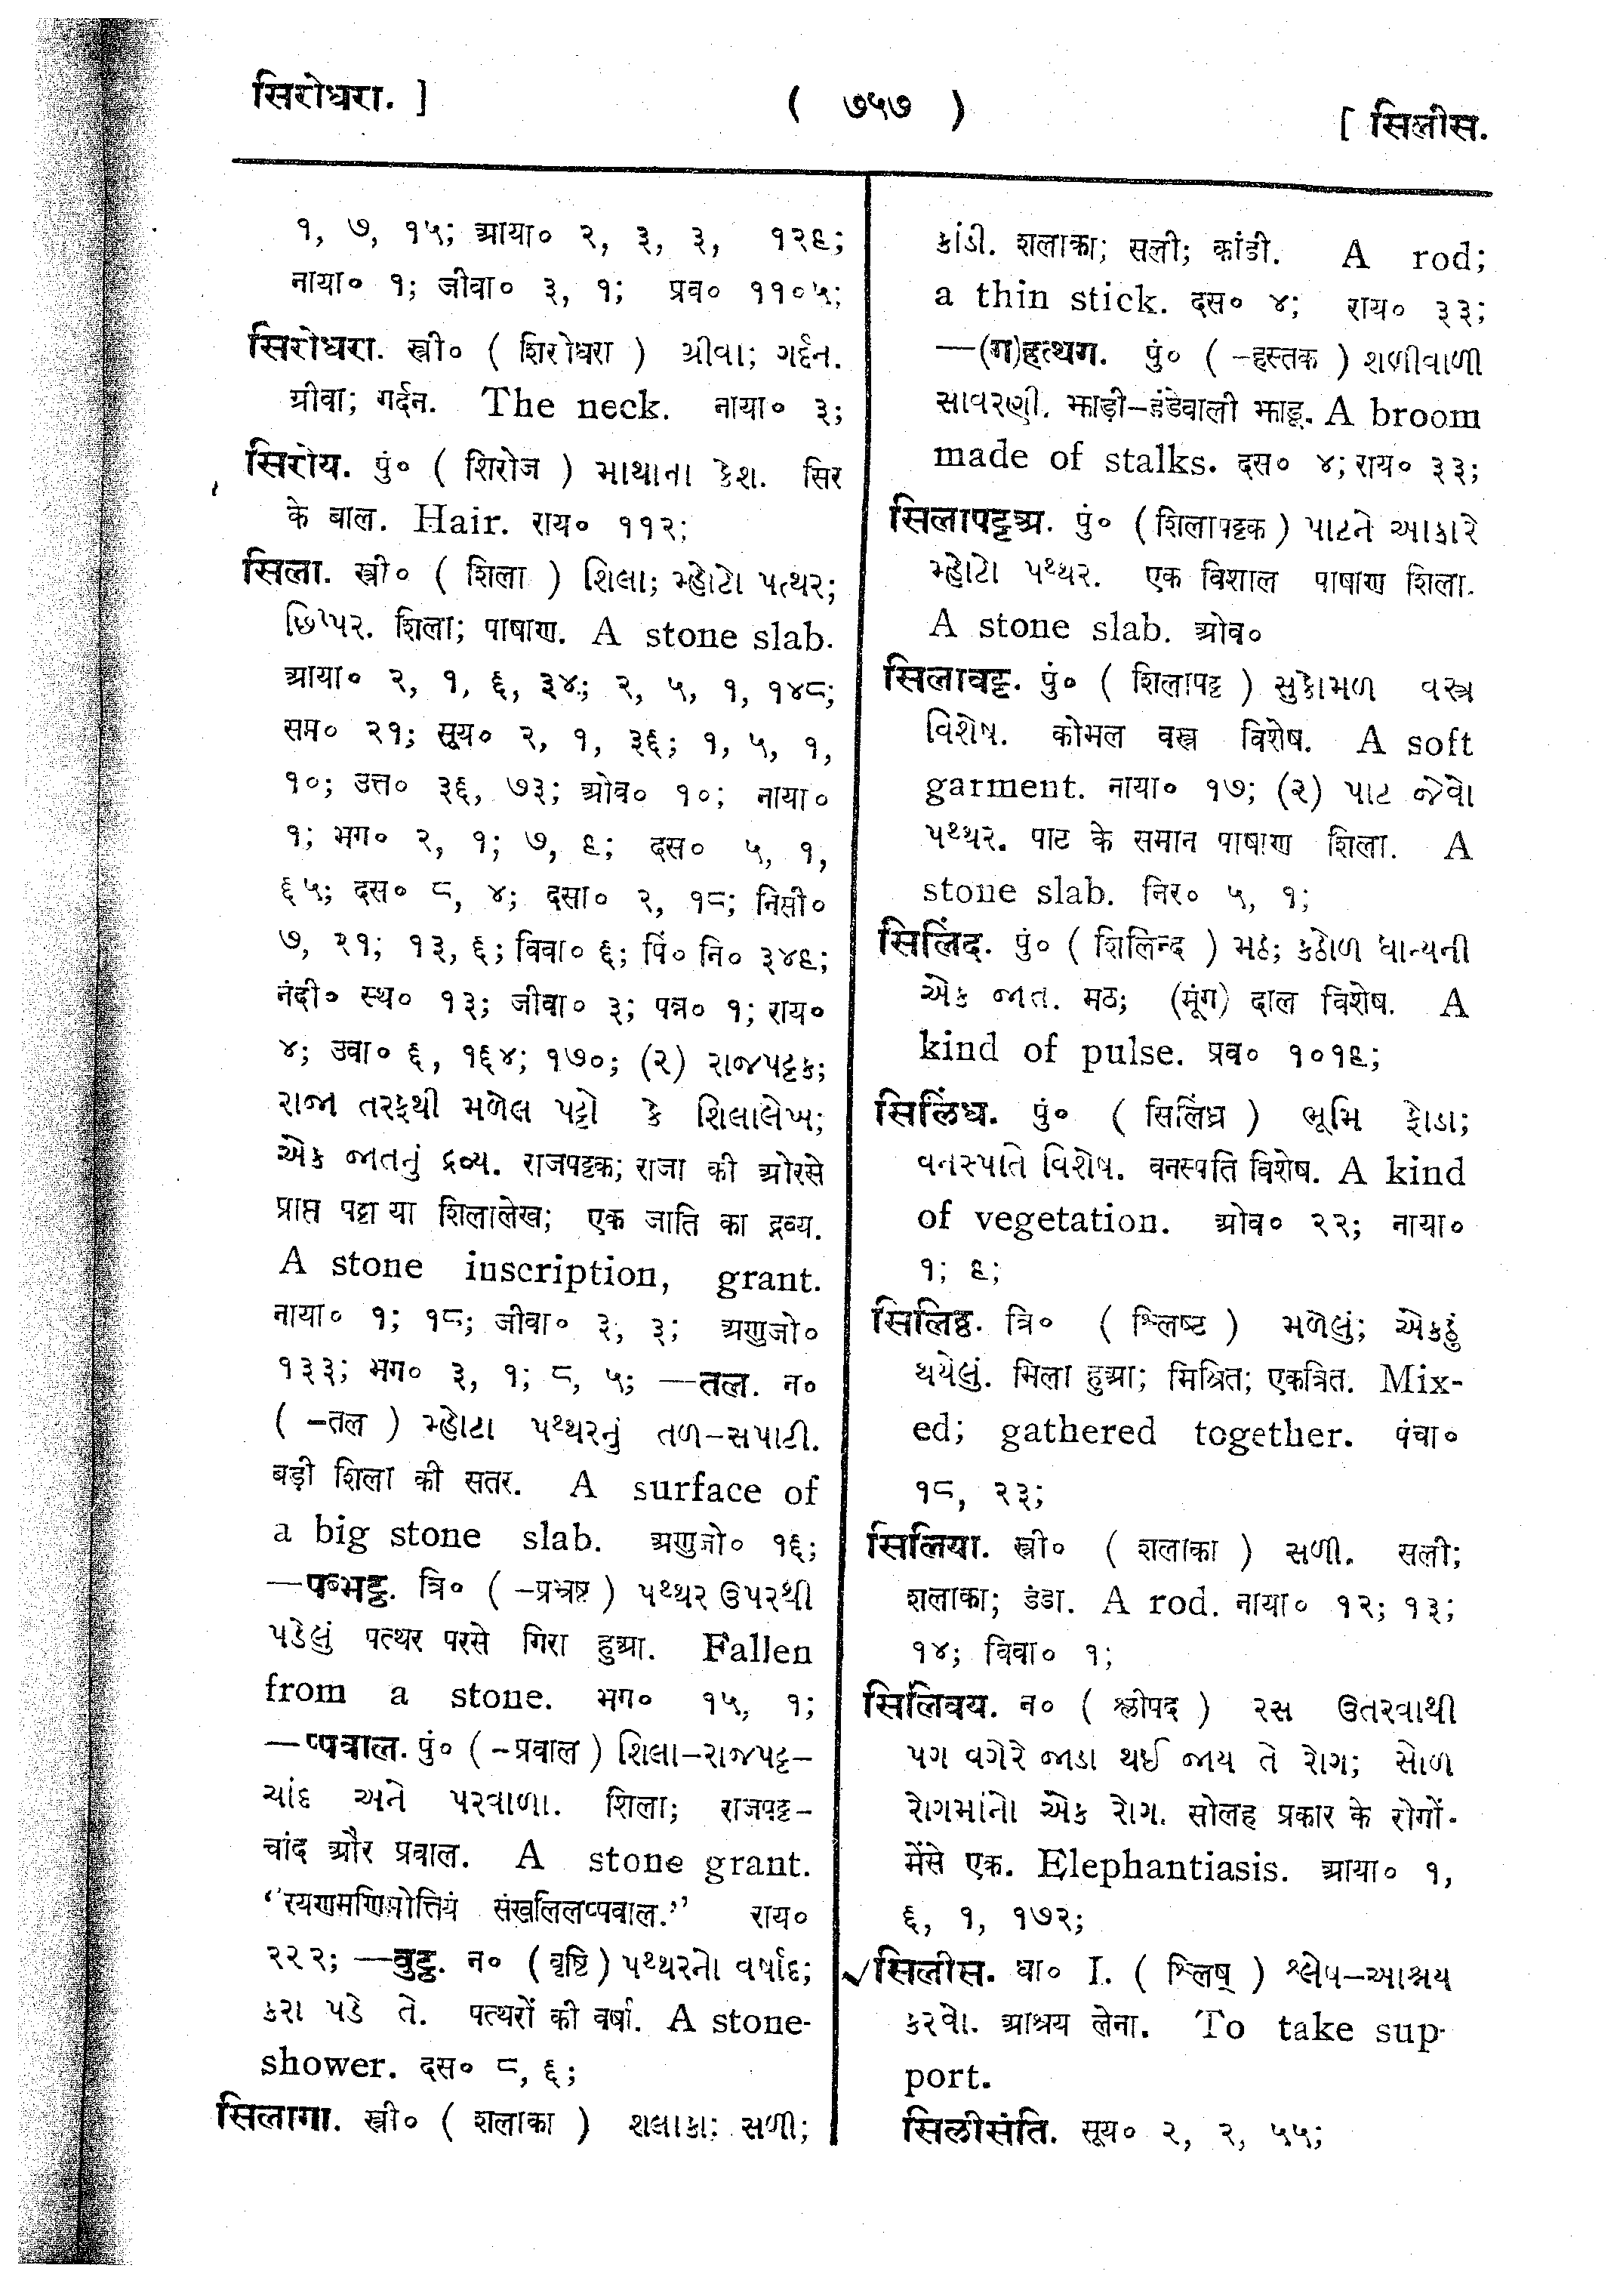 सिरोधरा. ]
( ७५७ )
[ सिलीस.
१, ७, १५; आया० २, ३, ३, १२९;
नाया० १; जीवा० ३, १; प्रव० ११०५;
सिरोधरा. स्त्री० ( शिरोधरा ) ग्रीवा; गर्दन.
ग्रीवा; गर्दन. The neck. नाया० ३;
सिरोय. पुं० ( शिरोज ) માથાના કેશ. सिर
के बाल. Hair. राय० ११२;
सिला. स्त्री० ( शिला ) શિલા; મ્હોટો પત્થર;
છિપ્પર. शिला; पाषाण. A stone slab.
आया० २, १, ६, ३४; २, ५, १, १४८;
सम० २१; सूय० २, १, ३६; १, ५, १,
१०; उत्त० ३६, ७३; ओव० १०; नाया०
१; भग० २, १; ७, ९; दस० ५, १,
६५; दस० ८, ४; दसा० २, १८; निसी०
७, २१; १३, ६; विवा० ६; पिं० नि० ३४९;
नंदी० स्थ० १३; जीवा० ३; पन्न० १; राय०
४; उवा० ६, १६४; १७०; (२) રાજપટ્ટક;
રાજા તરફથી મળેલ પટ્ટો કે શિલાલેખ;
એક જાતનું દ્રવ્ય. राजपट्टक; राजा की ओरसे
प्राप्त पट्टा या शिलालेख; एक जाति का द्रव्य.
A stone inscription, grant.
नाया० १; १८; जीवा० ३, ३; अणुजो०
१३३; भग० ३, १; ८, ५; —तल. न०
( -तल ) મ્હોટા પથ્થરનું તળ-સપાટી.
बड़ी शिला की सतर. A surface of
a big stone slab. अणुजो० १६;
—पब्भट्ठ. त्रि० ( -प्रभ्रष्ट ) પથ્થર ઉપરથી
પડેલું पत्थर परसे गिरा हुआ. Fallen
from a stone. भग० १५, १;
—प्पवाल. पुं० ( -प्रवाल ) શિલા-રાજપટ્ટ-
ચાંદ અને પરવાળા. शिला; राजपट्ट-
चांद और प्रवाल. A stone grant.
“रयणमणिमोत्तियं संखलिलप्पवाल.” राय०
२२२; —वुट्ठ. न० ( वृष्टि ) પથ્થરનો વર્ષાદ;
કરા પડે તે. पत्थरों की वर्षा. A stone-
shower. दस० ८, ६;
सिलागा. स्त्री० ( शलाका ) શલાકા; સળી;
કાંડી. शलाका; सली; कांडी. A rod;
a thin stick. दस० ४; राय० ३३;
—(ग)हत्थग. पुं० ( -हस्तक ) શળીવાળી
સાવરણી. झाड़ी-डंडेवाली झाडू. A broom
made of stalks. दस० ४; राय० ३३;
सिलापट्टअ. पुं० ( शिलापट्टक ) પાટને આકારે
મ્હોટો પથ્થર. एक विशाल पाषाण शिला.
A stone slab. ओव०
सिलावट्ट. पुं० ( शिलापट्ट ) સુકોમળ વસ્ત્ર
વિશેષ. कोमल वस्त्र विशेष. A soft
garment. नाया० १७; (२) પાટ જેવો
પથ્થર. पाट के समान पाषाण शिला. A
stone slab. निर० ५, १;
सिलिंद. पुं० ( शिलिन्द ) મઠ; કઠોળ ધાન્યની
એક જાત. मठ; (मूंग) दाल विशेष. A
kind of pulse. प्रव० १०१९;
सिलिंध. पुं० ( सिलिंध्र ) ભૂમિ ફોડા;
વનસ્પતિ વિશેષ. वनस्पति विशेष. A kind
of vegetation. ओव० २२; नाया०
१; ९;
सिलिट्ठ. त्रि० ( श्लिष्ट ) મળેલું; એકઠું
થયેલું. मिला हुआ; मिश्रित; एकत्रित. Mix-
ed; gathered together. पंचा०
१८, २३;
सिलिया. स्त्री० ( शलाका ) સળી. सली;
शलाका; डंडा. A rod. नाया० १२; १३;
१४; विवा० १;
सिलिवय. न० ( श्लीपद ) રસ ઉતરવાથી
પગ વગેરે જાડા થઈ જાય તે રોગ; સોળ
રોગમાંનો એક રોગ. सोलह प्रकार के रोगों-
मेंसे एक. Elephantiasis. आया० १,
६, १, १७२;
✓सिलीस. धा० I. ( श्लिष् ) શ્લેષ-આશ્રય
કરવો. आश्रय लेना. To take sup-
port.
सिलीसंति. सूय० २, २, ५५;